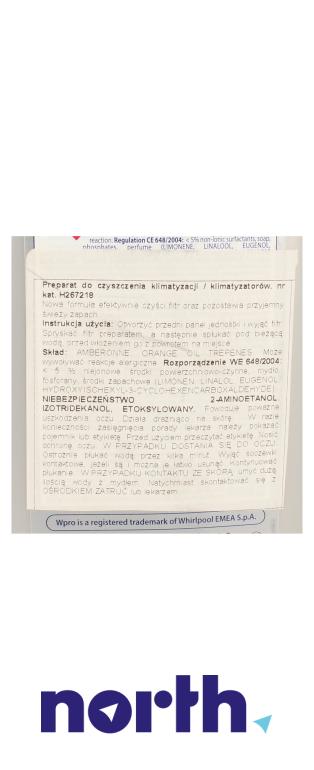 reaction. Regulation CE 648/2004: < 5% non-ionic surfactants, soap,
phosphates, perfume (LIMONENE, LINALOOL, EUGENOL,
Preparat do czyszczenia klimatyzacji / klimatyzatorów, nr
kat. H267218
Nowa formuła efektywnie czyści filtr oraz pozostawia przyjemny,
świeży zapach.
Instrukcja użycia: Otworzyć przedni panel jednostki i wyjąć filtr.
Spryskać filtr preparatem, a następnie spłukać pod bieżącą
wodą, przed włożeniem go z powrotem na miejsce.
Skład: AMBERONNE, ORANGE OIL TREPENES. Może
wywoływać reakcje alergiczne. Rozporządzenie WE 648/2004:
< 5 % niejonowe środki powierzchniowo-czynne, mydło,
fosforany, środki zapachowe (LIMONEN, LINALOL, EUGENOL,
HYDROXYISOHEXYL-3-CYCLOHEXENCARBOXALDEHYDE).
NIEBEZPIECZEŃSTWO 2-AMINOETANOL,
IZOTRIDEKANOL, ETOKSYLOWANY. Powoduje poważne
uszkodzenia oczu. Działa drażniąco na skórę. W razie
konieczności zasięgnięcia porady lekarza należy pokazać
pojemnik lub etykietę. Przed użyciem przeczytać etykietę. Nosić
ochronę oczu. W PRZYPADKU DOSTANIA SIĘ DO OCZU:
Ostrożnie płukać wodą przez kilka minut. Wyjąć soczewki
kontaktowe, jeżeli są i można je łatwo usunąć. Kontynuować
płukanie. W PRZYPADKU KONTAKTU ZE SKÓRĄ: umyć dużą
ilością wody z mydłem. Natychmiast skontaktować się z
OŚRODKIEM ZATRUĆ lub lekarzem.
Wpro is a registered trademark of Whirlpool EMEA S.p.A.
north.